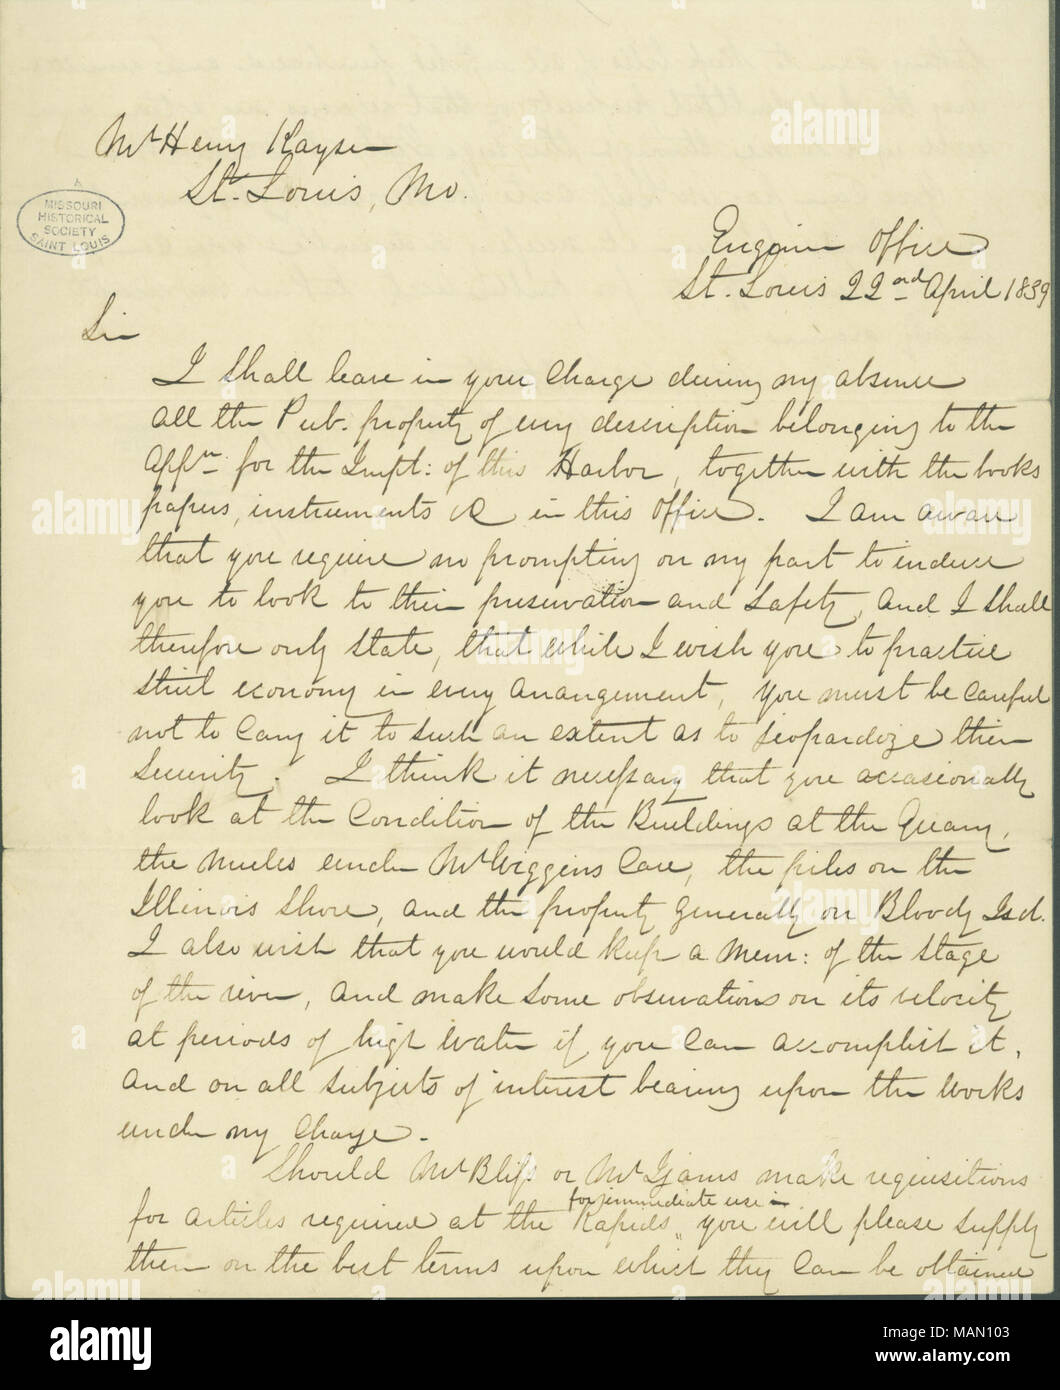 Mr Henry Kayser
St. Louis, Mo.
MISSOURI
HISTORICAL
SOCIETY
SAINT LOUIS
Engine Office
St. Louis 22nd April 1839
Sir
I shall leave in your charge during my absence
all the Pub. property of every description belonging to the
App.n for the Impt: of this Harbor, together with the books
papers, instruments &c in this office. I am aware
that you require no prompting on my part to induce
you to look to their preservation and safety, and I shall
therefore only state, that while I wish you to practice
strict economy in every arrangement, you must be careful
not to carry it to such an extent as to jeopardize their
security. I think it necessary that you occasionally
look at the condition of the Buildings at the Quarry,
the mules under Mr Wiggins Care, the piles on the
Illinois Shore, and the property generally on Bloody Isd.
I also wish that you would keep a Mem: of the stage
of the river, and make some observations on its velocity
at periods of high water if you can accomplish it,
and on all subjects of interest bearing upon the works
under my charge.
Should Mr Bliss or Mr make requisitions
for immediate use
for articles required at the Rapids, you will please supply
them on the best terms upon which they can be obtained
alamy
Image ID: MAN103
www.alamy.com